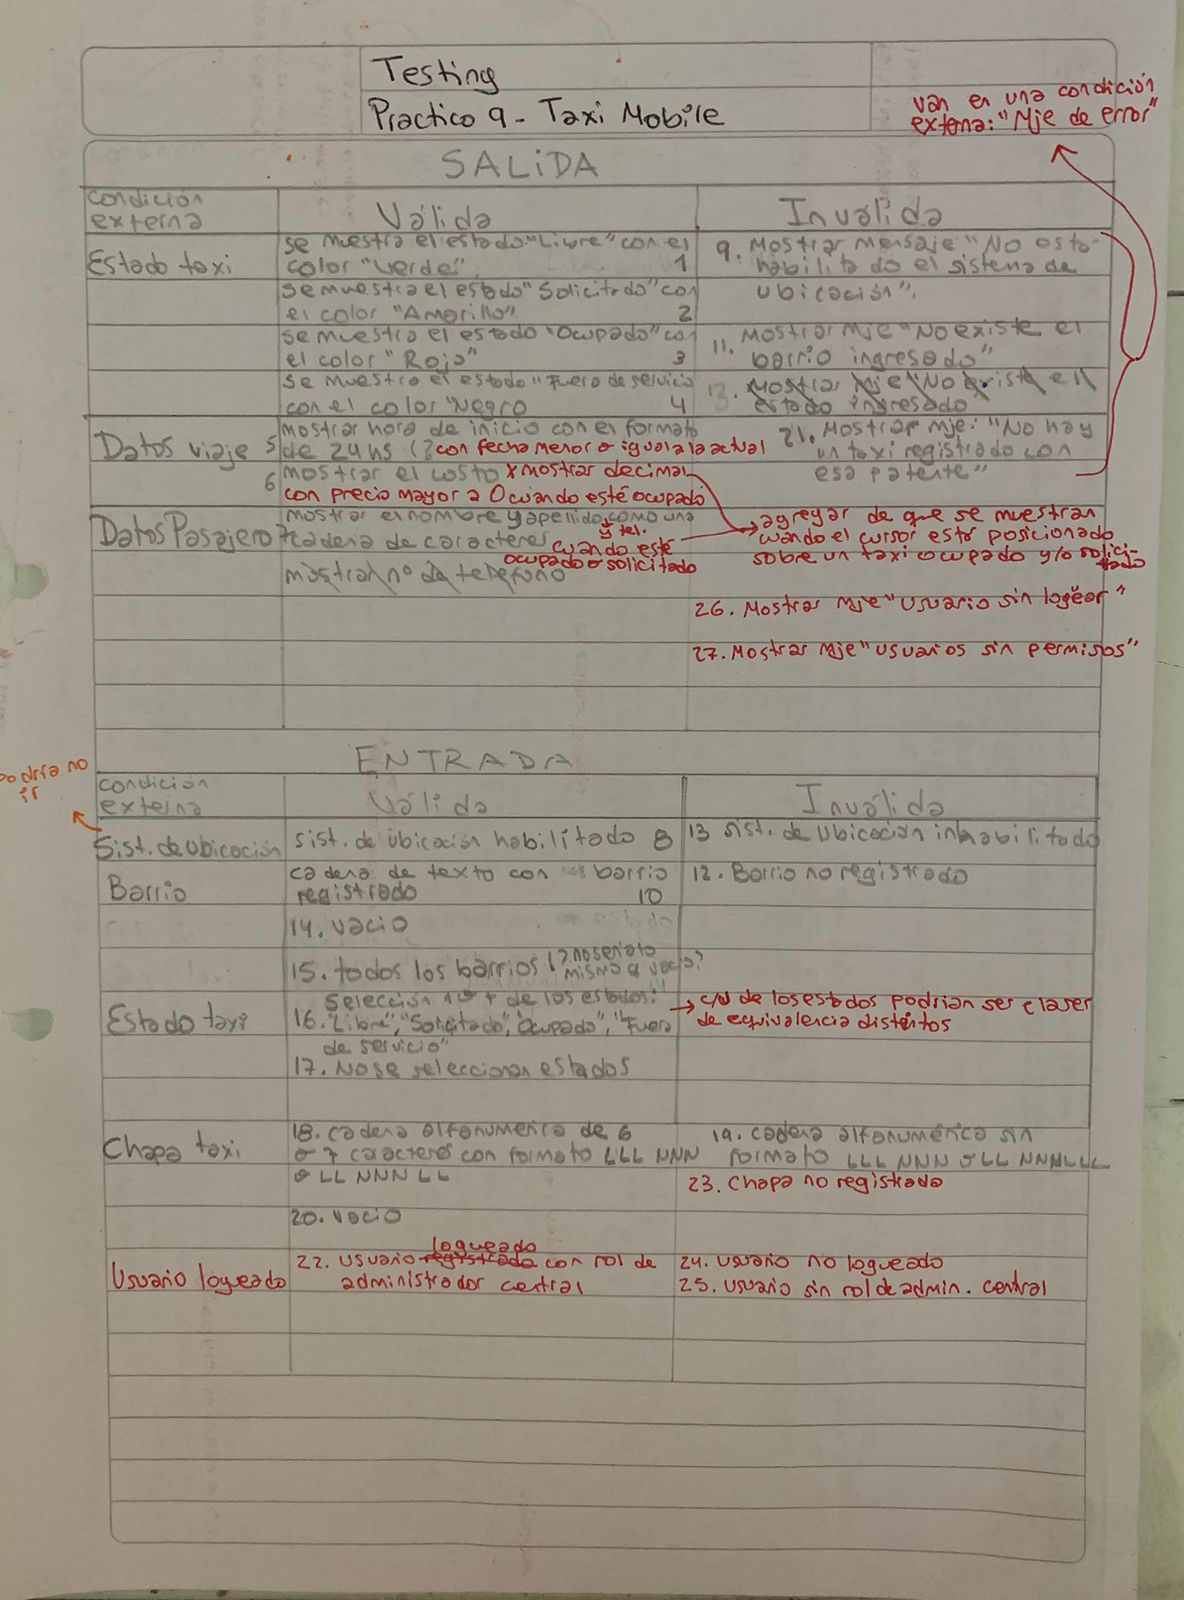 Testing
Practico 9 - Taxi Mobile
van en una condición
externa: "Mje de error"
SALIDA
condición
externa
Válida
Inválida
Estado taxi
se muestra el estado "Libre" con el
color "verde". 1
9. Mostrar mensaje "No esta
habilitado el sistema de
ubicación".
se muestra el estado "Solicitado" con
el color "Amarillo" 2
se muestra el estado "Ocupado" con
el color "Rojo" 3
11. Mostrar mje "No existe el
barrio ingresado"
se muestra el estado "Fuera de servicio
con el color "Negro 4
13. Mostrar Mje "No exista el
estado ingresado
Datos viaje
5 mostrar hora de inicio con el formato
de 24 hs (? con fecha menor o igual a la actual
21. Mostrar mje: "No hay
un taxi registrado con
esa patente"
6 mostrar el costo x mostrar decimal
con precio mayor a 0 cuándo esté ocupado
Datos Pasajero
7 mostrar el nombre y apellido como una
y tel.
cadena de caracteres cuándo esté
ocupado o solicitado
mostrar n° de telefono
→ agregar de que se muestran
cuándo el cursor está posicionado
sobre un taxi ocupado y/o solici-
tado
26. Mostrar mje "Usuario sin logear"
27. Mostrar Mje "usuarios sin permisos"
ENTRADA
podría no
ir
condición
externa
Válida
Inválida
Sist. de Ubicación
sist. de ubicación habilitado 8
13 sist. de Ubicación inhabilitado
Barrio
cadena de texto con barrio
registrado 10
12. Barrio no registrado
14. vacio
15. todos los barrios (? no seria lo
mismo q vacio?
Estado taxi
Selección 1 o + de los estados:
16. "Libre", "Solicitado", "Ocupado", "Fuera
de servicio"
→ c/u de los estados podrían ser clases
de equivalencia distintos
17. No se seleccionan estados
Chapa taxi
18. cadena alfanumerica de 6
o 7 caracteres con formato LLL NNN
o LL NNN LL
19. cadena alfanumérica sin
formato LLL NNN o LL NNNLLL
23. Chapa no registrada
20. vacio
Usuario logueado
logueado
22. Usuario registrado con rol de
administrador central
24. Usuario no logueado
25. Usuario sin rol de admin. central